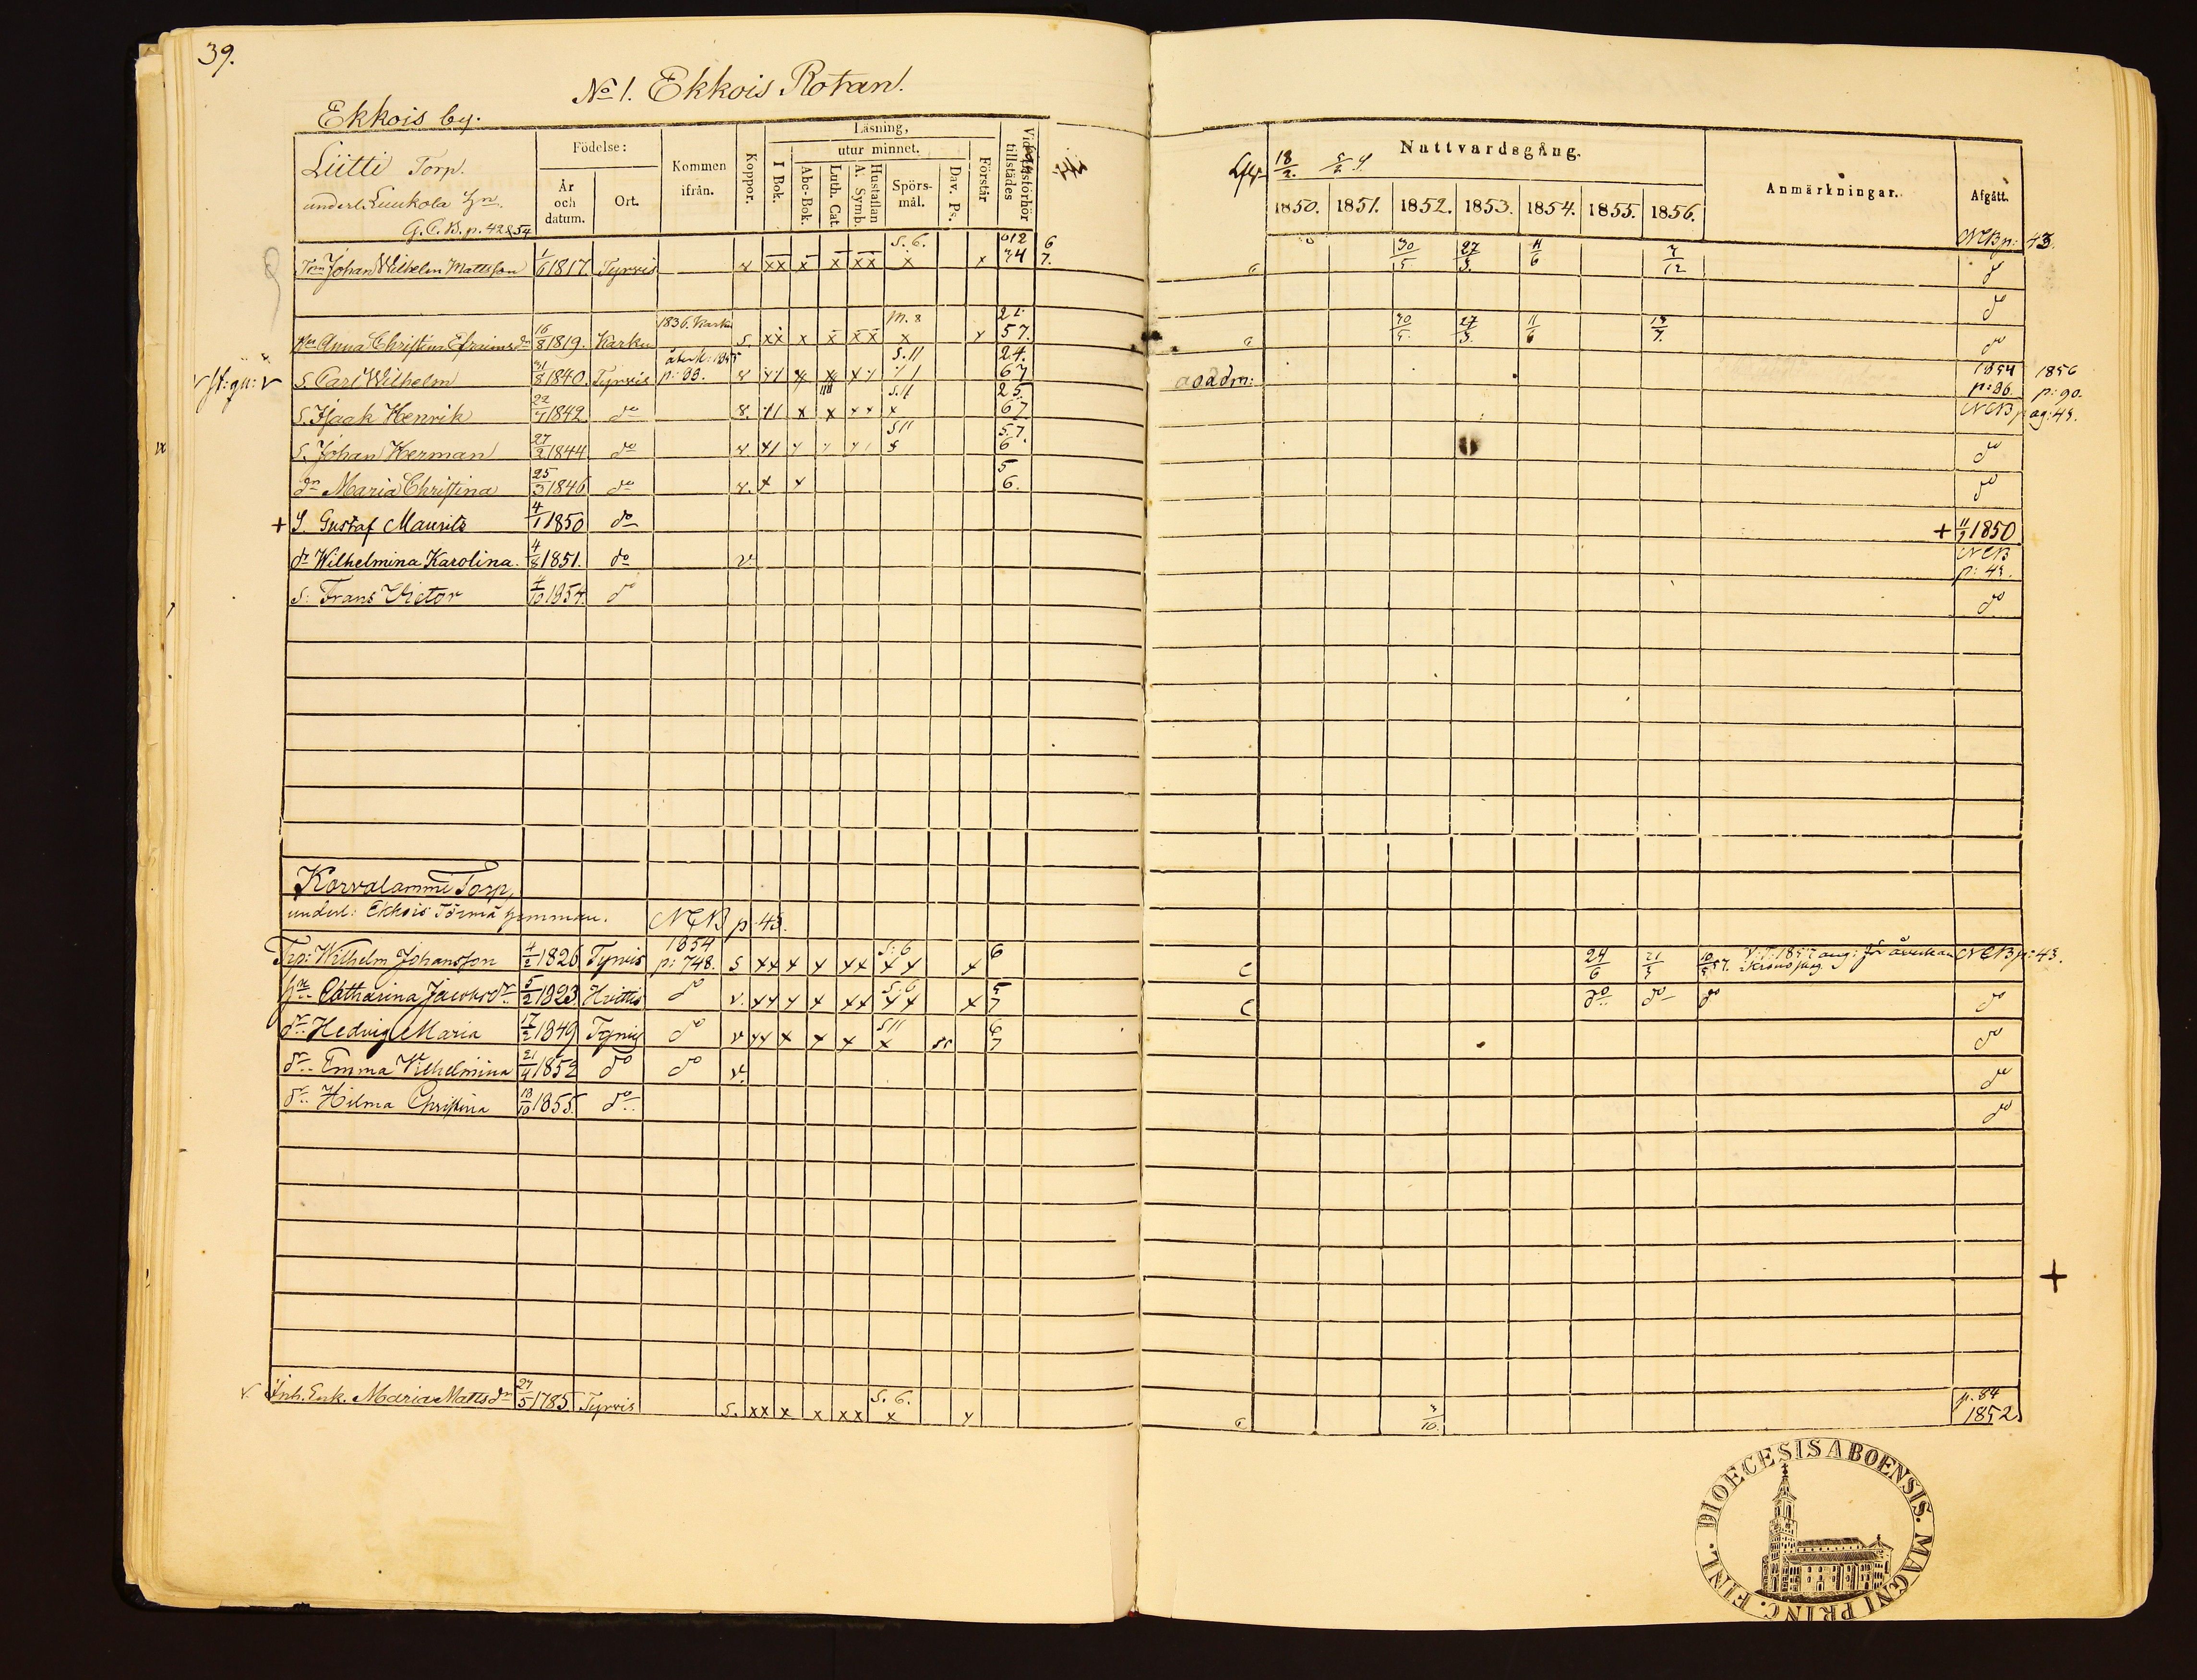 39.
No 1. Ekkois Rotan.
Ekkois by.
Liitti Torp.
underl. Luukola Hn.
G.C.B. p. 42 & 54
Födelse:
År och datum.
Ort.
Kommen ifrån.
Koppor.
Läsning,
I Bok.
utur minnet.
Abc-Bok.
Luth. Cat.
Hustaflan A. Symb.
Spörsmål.
Dav. Ps.
Förstår
tillstädes
18/2.
Nattvardsgång.
1850. 1851. 1852. 1853. 1854. 1855. 1856.
Anmärkningar.
Afgått.
Johan Wilhelm Mattsson 1/6 1817. Tyrvis xx x x xx S. 6. x x 012 74 6 7. 30/5 27/3. 11/6 7/12 NCB p: 43. do
do
Anna Christina Efraimsdr 16/8 1819. Karku 1836. Karku S. xx x x xx m. 8 x x 57. 30/5. 27/3. 11/6 do
S. Carl Wilhelm 31/8 1840. Tyrvis återk: 1855 p: 99. S. 11 24. 67 aoadm: 1854 p: 86. 1856 p: 90.
S. Isaak Henrik 22/ 1842 do 8. x x xx S. 11 x 25. 67 NCB pag: 43.
S. Johan Herman 27/2 1844 do S 11 57. 6 do
dr Maria Christina 25/3 1846 do x x 5 6. do
+ S. Gustaf Maurits 4/1 1850 do + 11/ 1850
dr Wilhelmina Karolina. 4/8 1851. do v. NCB p: 43.
S: Frans Victor 4/10 1854. do do
Korvalammi Torp,
underl: Ekkois Törmä hemman. NCB p. 43.
Trp: Wilhelm Johansson 4/2 1826 Tyrvis 1854 p: 748. S xx x x xx S: 6 xx x 6 C 24/6 21/5 NCB p: 43.
Catharina Jacobsdr 5/2 1823. Hvittis do v. xx x x xx S: 6 xx x 5 7 C do do do do
dr Hedvig Maria 17/2 1849 Tyrvis do v xx x x x S 11 x 6 7 do
dr Emma Vilhelmina 21/4 1852 do do v. do
dr Hilma Christina 18/10 1855. do do
+
v. Inh. Enk. Maria Mattsdr 27/5 1785 Tyrvis S. xx x x xx S. 6. x x /10. p. 84 1852
DIOECESIS ABOENSIS. MAGNI PRINC. FINL.